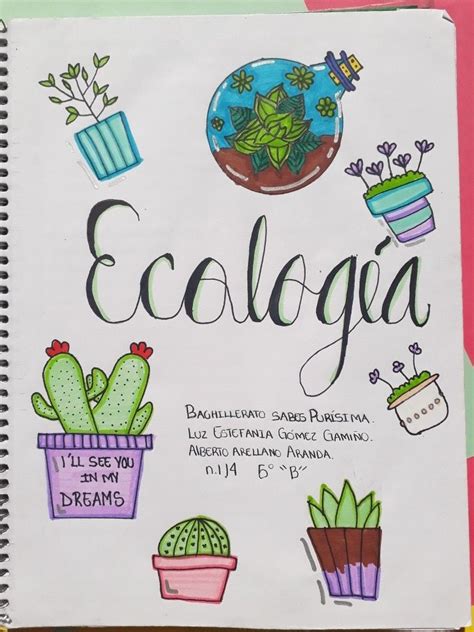 Ecología
BACHILLERATO SABES PURÍSIMA.
LUZ ESTEFANIA GÓMEZ GAMIÑO.
ALBERTO ARELLANO ARANDA.
n.l 14 5° "B"
I'LL SEE YOU
IN MY
DREAMS